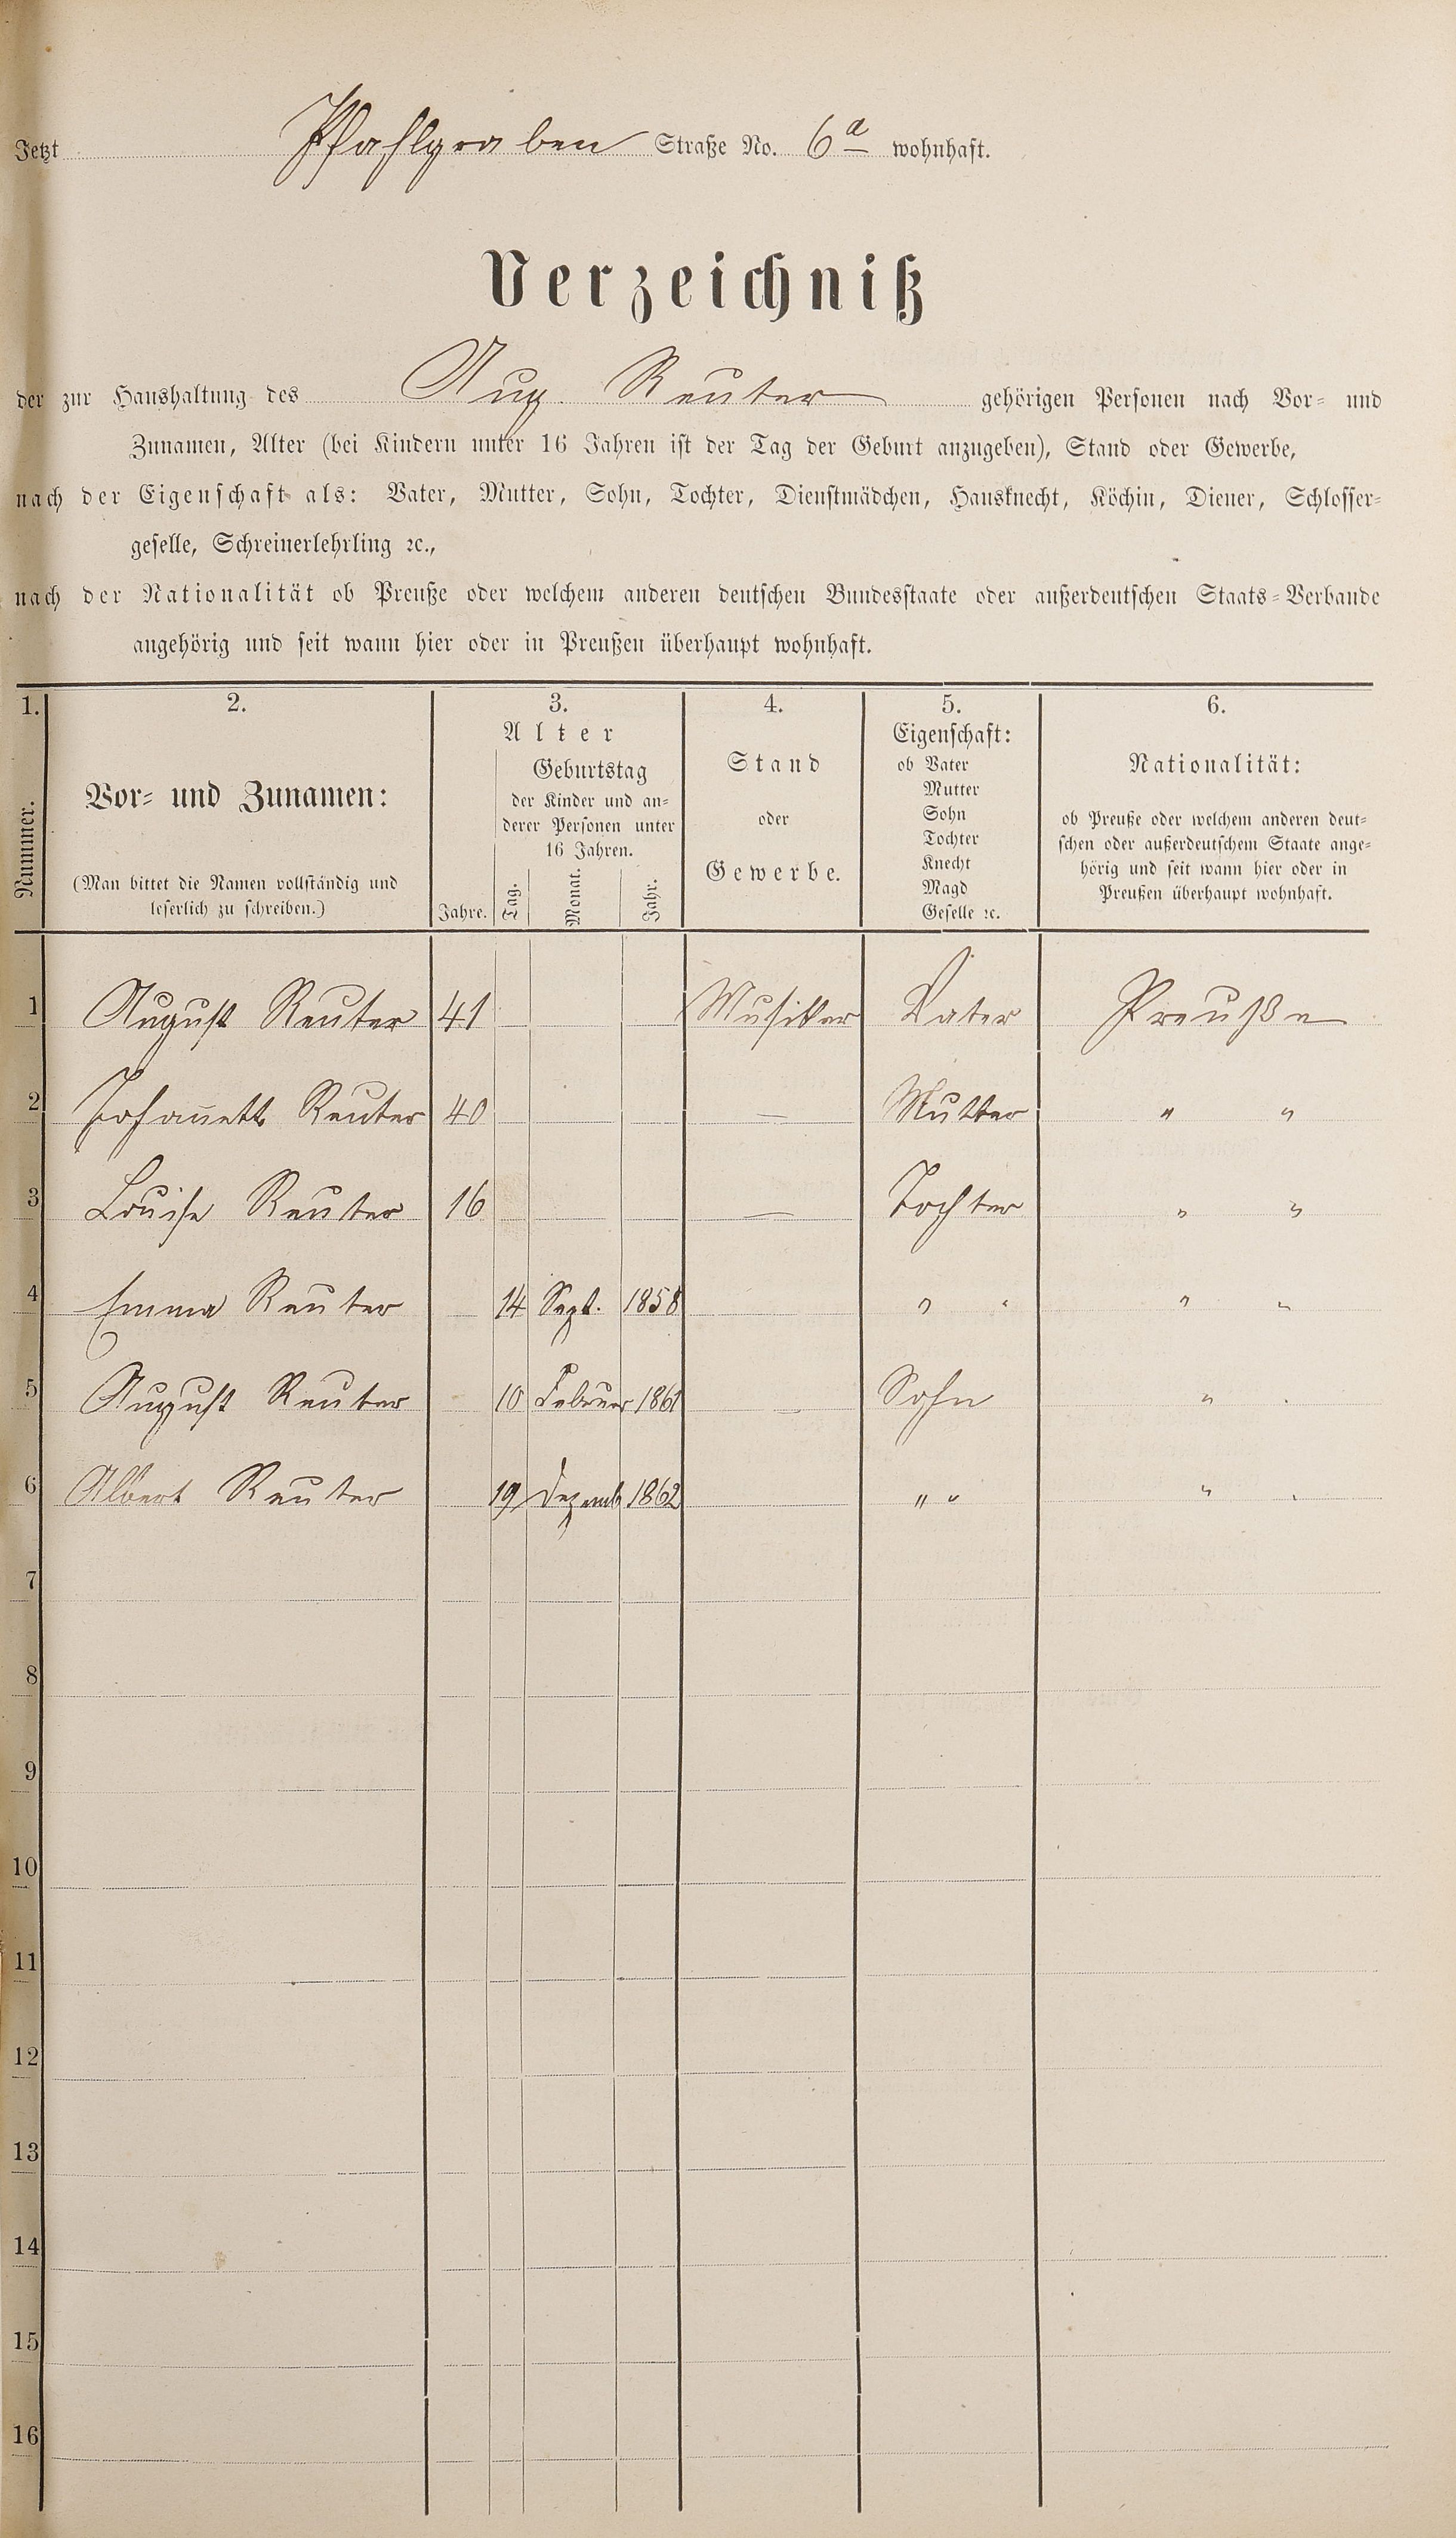 Jetzt Pfahlgraben Straße No. 6a wohnhaft.
Verzeichniß
der zur Haushaltung des Aug. Reuter gehörigen Personen nach Vor- und
Zunamen, Alter (bei Kindern unter 16 Jahren ist der Tag der Geburt anzugeben), Stand oder Gewerbe,
nach der Eigenschaft als: Vater, Mutter, Sohn, Tochter, Dienstmädchen, Hausknecht, Köchin, Diener, Schlosser-
geselle, Schreinerlehrling ꝛc.,
nach der Nationalität ob Preuße oder welchem anderen deutschen Bundesstaate oder außerdeutschen Staats-Verbande
angehörig und seit wann hier oder in Preußen überhaupt wohnhaft.
1.
Nummer.
2.
Vor- und Zunamen:
(Man bittet die Namen vollständig und
leserlich zu schreiben.)
3.
Alter
Jahre.
Geburtstag
der Kinder und an-
derer Personen unter
16 Jahren.
Tag. Monat. Jahr.
4.
Stand
oder
Gewerbe.
5.
Eigenschaft:
ob Vater
Mutter
Sohn
Tochter
Knecht
Magd
Geselle ꝛc.
6.
Nationalität:
ob Preuße oder welchem anderen deut-
schen oder außerdeutschem Staate ange-
hörig und seit wann hier oder in
Preußen überhaupt wohnhaft.
1 August Reuter 41 Musiker Vater Preuße
2 Johanett Reuter 40 — Mutter " "
3 Louise Reuter 16 — Tochter " "
4 Emma Reuter 14 Sept. 1858 " " " "
5 August Reuter 10 Februar 1861 — Sohn " "
6 Albert Reuter 19 Dezemb 1862 " " " "
7
8
9
10
11
12
13
14
15
16